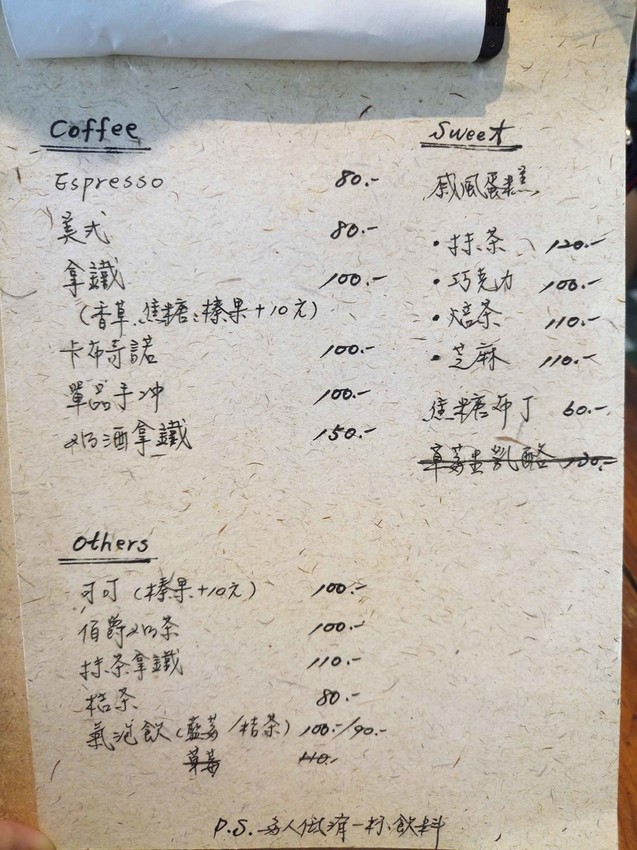 Coffee
Espresso 80.-
美式 80.-
拿鐵 100.-
(香草、焦糖、榛果+10元)
卡布奇諾 100.-
單品手沖 100.-
奶酒拿鐵 150.-
Sweet
戚風蛋糕
•抹茶 120.-
•巧克力 100.-
•焙茶 110.-
•芝麻 110.-
焦糖布丁 60.-
草莓生乳酪 130.-
Others
可可(榛果+10元) 100.-
伯爵奶茶 100.-
抹茶拿鐵 110.-
桔茶 80.-
氣泡飲(藍莓/桔茶) 100.-/90.-
草莓 110.-
P.S. 每人低消一杯飲料